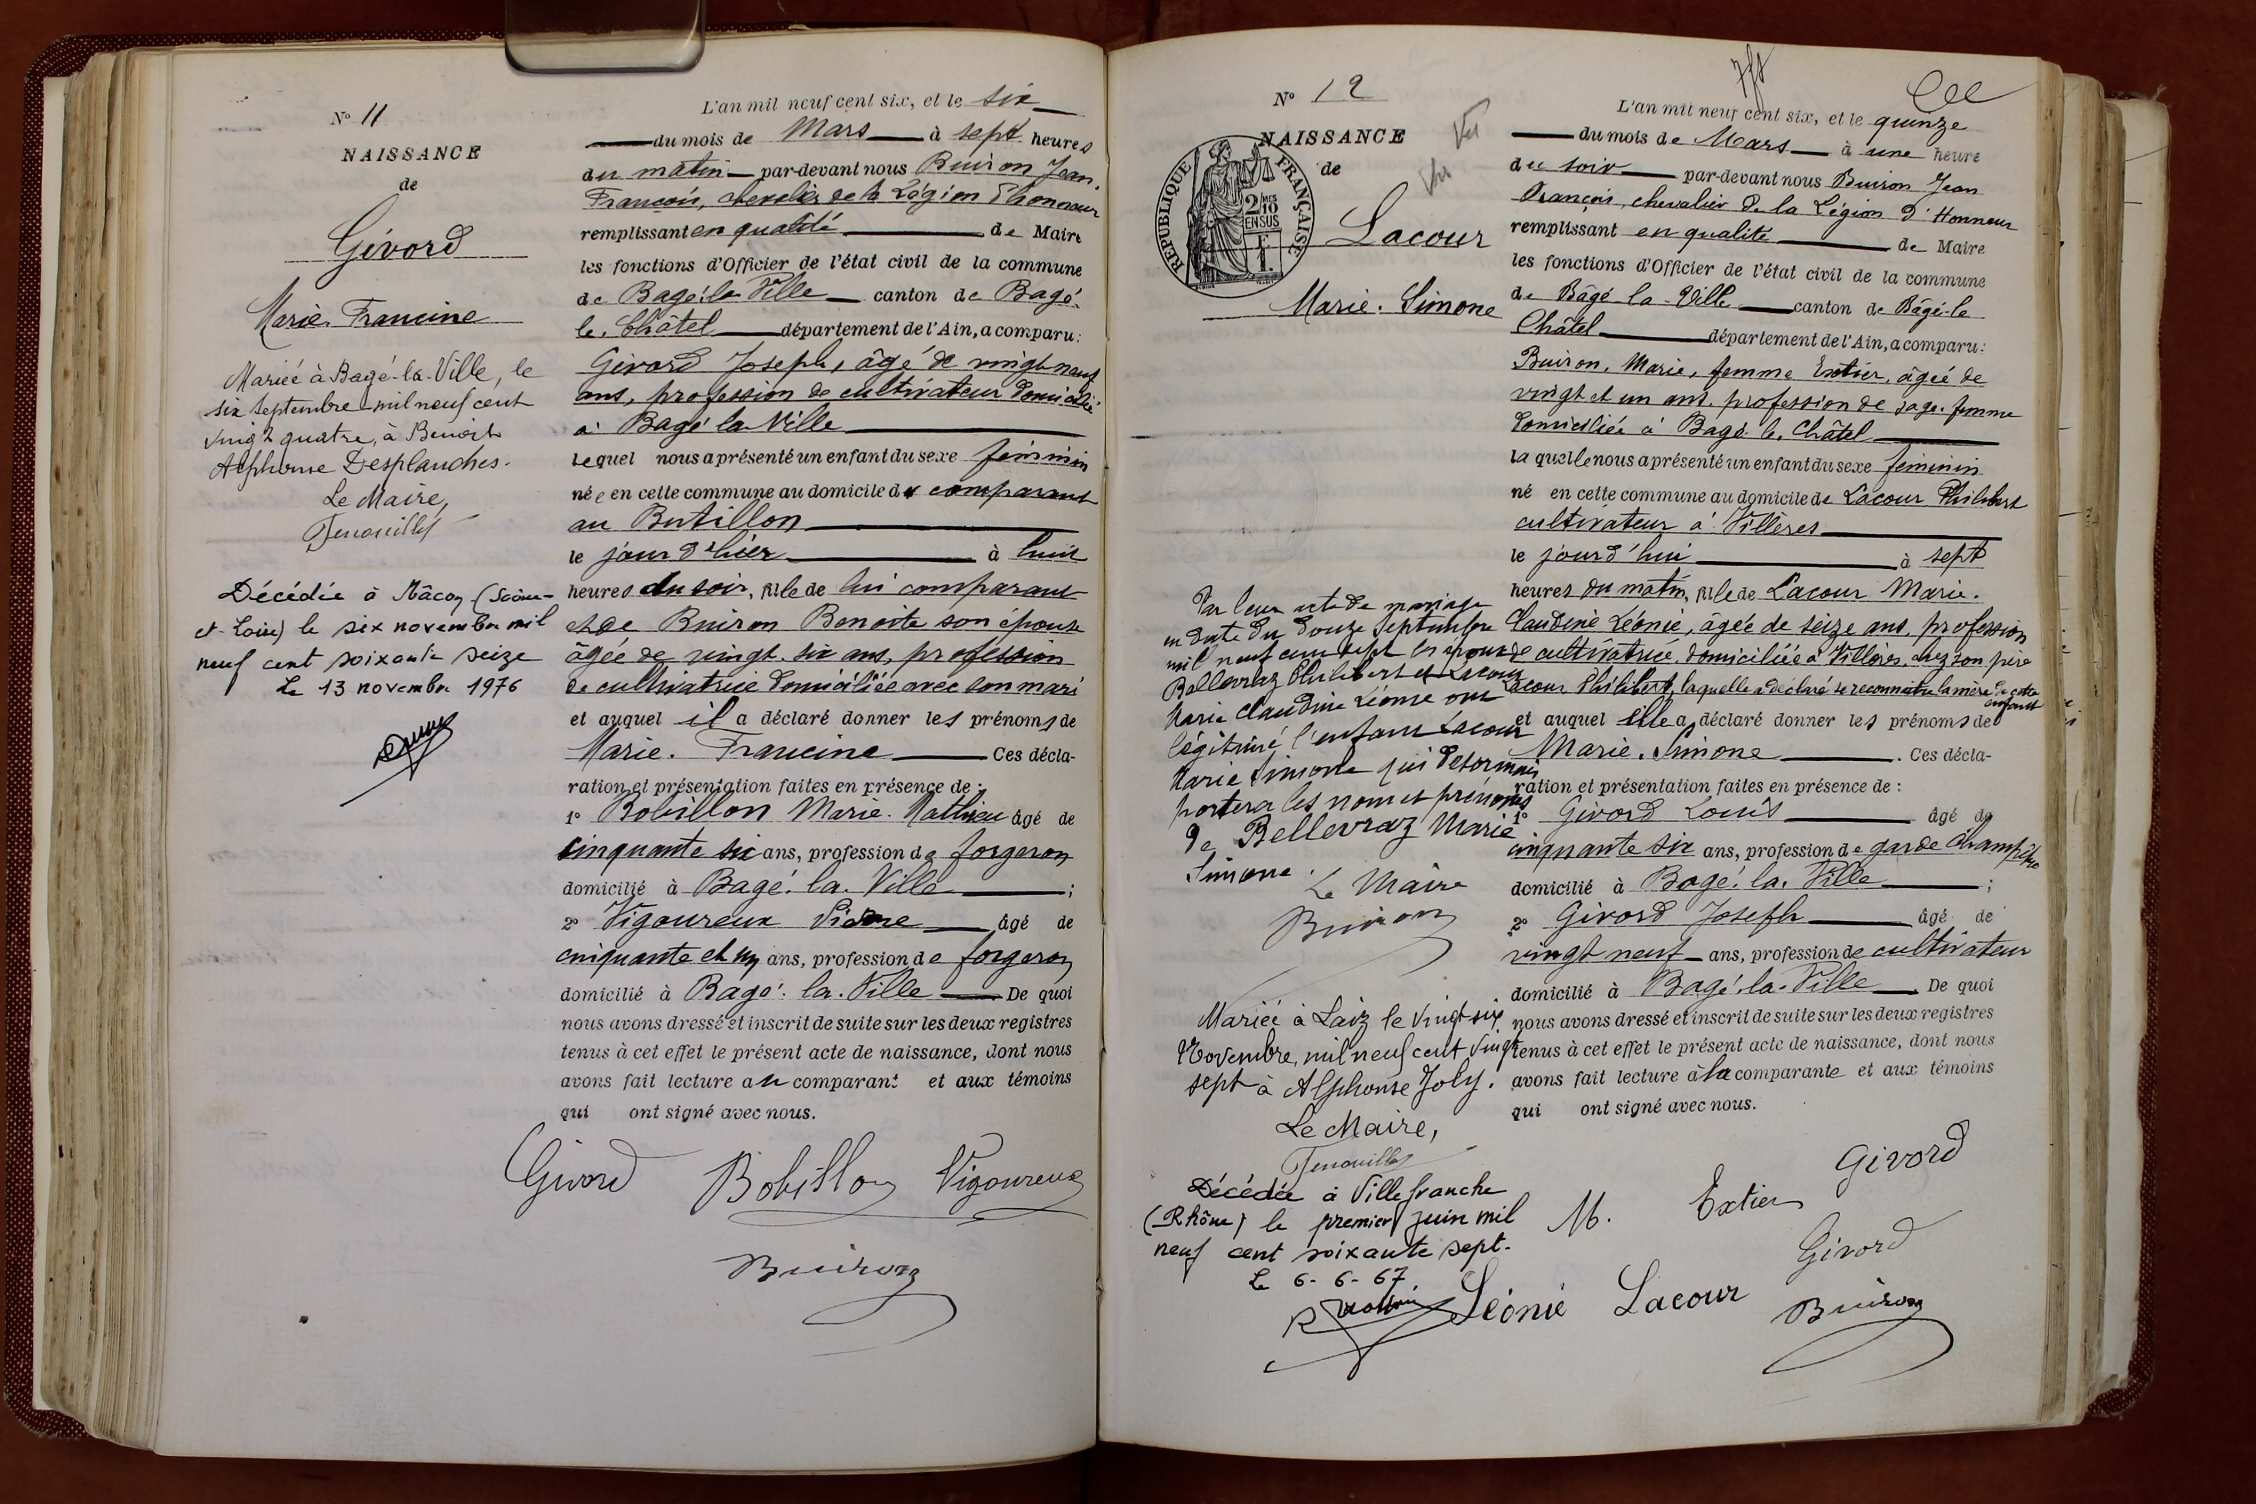 N° 11
NAISSANCE
de
Givord
Marie. Francine
Mariée à Bagé-la-Ville, le
six septembre mil neuf cent
vingt quatre, à Benoit
Alphonse Desplanches.
Le Maire,
Décédée à Mâcon (Saône-
et-Loire) le six novembre mil
neuf cent soixante seize
Le 13 novembre 1976
L'an mil neuf cent six, et le six
du mois de Mars à sept heures
du matin par-devant nous Buiron Jean.
François, chevalier de la Légion d'honneur
remplissant en qualité de Maire
les fonctions d'Officier de l'état civil de la commune
de Bagé-la-Ville canton de Bagé-
le. Châtel département de l'Ain, a comparu:
Givord Joseph, âgé de vingt-neuf
ans, profession de cultivateur domicilié
à Bagé la Ville
lequel nous a présenté un enfant du sexe féminin
née en cette commune au domicile du comparant
au Butillon
le jour d'hier à huit
heures du soir, fille de lui comparant
et de Buiron Benoite son épouse
âgée de vingt. six ans, profession
de cultivatrice domiciliée avec son mari
et auquel il a déclaré donner les prénoms de
Marie. Francine Ces décla-
ration et présentation faites en présence de:
1° Bobillon Marie. Mathieu âgé de
cinquante six ans, profession de forgeron
domicilié à Bagé. la. Ville ;
2° Vigoureux Pierre âgé de
cinquante et un ans, profession de forgeron
domicilié à Bagé. la. Ville De quoi
nous avons dressé et inscrit de suite sur les deux registres
tenus à cet effet le présent acte de naissance, dont nous
avons fait lecture au comparant et aux témoins
qui ont signé avec nous.
Givord Bobillon Vigoureux
Buiron
N° 12
NAISSANCE
de
RÉPUBLIQUE FRANÇAISE
2/10 EN SUS
Lacour
Marie. Simone
Vu
Vu
Par leur acte de mariage
en date du douze Septembre
mil neuf cent sept les époux
Bellevraz Philibert et Lacour
Marie Claudine Léonie ont
légitimé l'enfant Lacour
Marie Simone qui désormais
portera les nom et prénoms
de Bellevraz Marie
Simone.
Le Maire
Buiron
Mariée à Laiz le vingt six
Novembre, mil neuf cent vingt
sept à Alphonse Joly.
Le Maire,
Décédée à Villefranche
(Rhône) le premier juin mil
neuf cent soixante sept.
Le 6-6-67
L'an mil neuf cent six, et le quinze
du mois de Mars à une heure
du soir par-devant nous Buiron Jean
François, chevalier de la Légion d'Honneur
remplissant en qualité de Maire
les fonctions d'Officier de l'état civil de la commune
de Bâgé-la-Ville canton de Bâgé-le
Châtel département de l'Ain, a comparu:
Buiron, Marie, femme Extier, âgée de
vingt et un ans. profession de sage. femme
domiciliée à Bagé. le. Châtel
laquelle nous a présenté un enfant du sexe féminin
né en cette commune au domicile de Lacour Philibert
cultivateur à Villères
le jourd'hui à sept
heures du matin, fille de Lacour Marie.
Claudine Léonie, âgée de seize ans, profession
de cultivatrice, domiciliée à Villères, chez son père
Lacour Philibert, laquelle a déclaré se reconnaitre la mère de cette enfant
et auquel elle a déclaré donner les prénoms de
Marie. Simone . Ces décla-
ration et présentation faites en présence de:
1° Givord Louis âgé de
cinquante six ans, profession de garde champêtre
domicilié à Bagé. la. Ville ;
2° Givord Joseph âgé de
vingt neuf ans, profession de cultivateur
domicilié à Bagé. la. Ville . De quoi
nous avons dressé et inscrit de suite sur les deux registres
tenus à cet effet le présent acte de naissance, dont nous
avons fait lecture à la comparante et aux témoins
qui ont signé avec nous.
Givord
M. Extier
Givord
Léonie Lacour Buiron